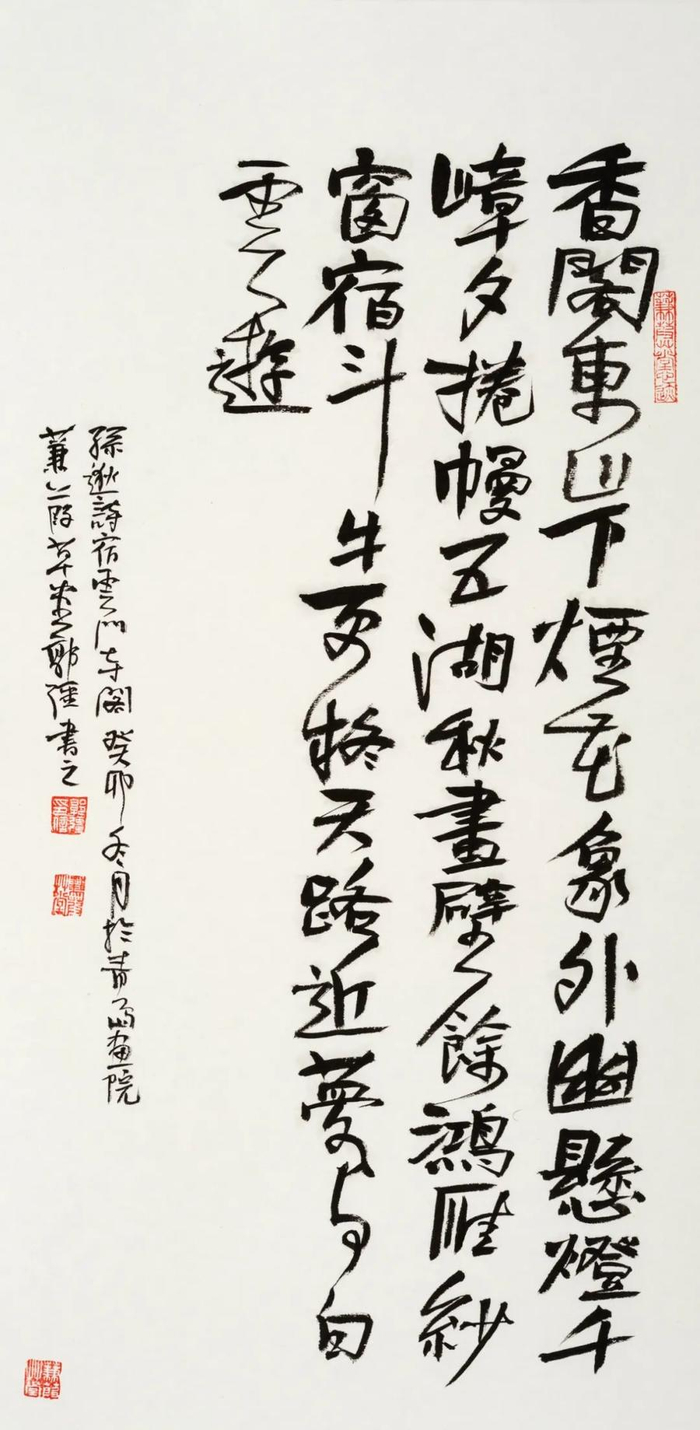 香閣東山下煙花象外幽懸燈千
嶂夕捲幔五湖秋畫壁餘鴻雁紗
窗宿斗牛更疑天路近夢与白
雲遊
孫逖詩宿雲門寺閣癸卯冬月於青島畫院
蒹葭草堂郭强書之